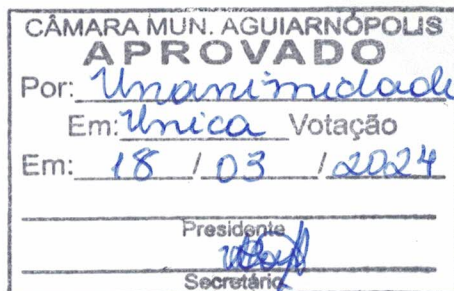 CÂMARA MUN. AGUIARNÓPOLIS
APROVADO
Por: Unanimidade
Em: Única Votação
Em: 18 / 03 / 2024
Presidente
Secretário